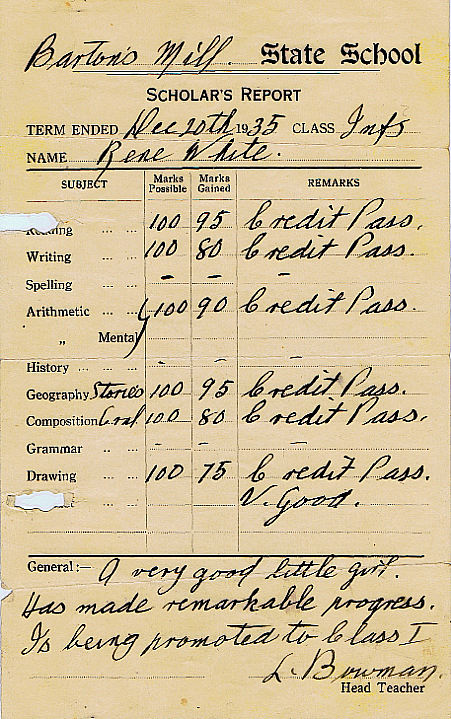 Barton's Mill. State School
SCHOLAR'S REPORT
TERM ENDED Dec 20th 1935 CLASS Infs
NAME Rene White.
SUBJECT Marks Possible Marks Gained REMARKS
Reading ... ... 100 95 Credit Pass.
Writing ... ... 100 80 Credit Pass.
Spelling ... ... – – –
Arithmetic ... ... 100 90 Credit Pass.
„ Mental
History ... ... - - -
Geography Stories 100 95 Credit Pass.
Composition Oral 100 80 Credit Pass.
Grammar ... ... - - -
Drawing ... ... 100 75 Credit Pass.
... ... V. Good.
General:— A very good little girl.
Has made remarkable progress.
Is being promoted to Class I
L. Bowman.
Head Teacher